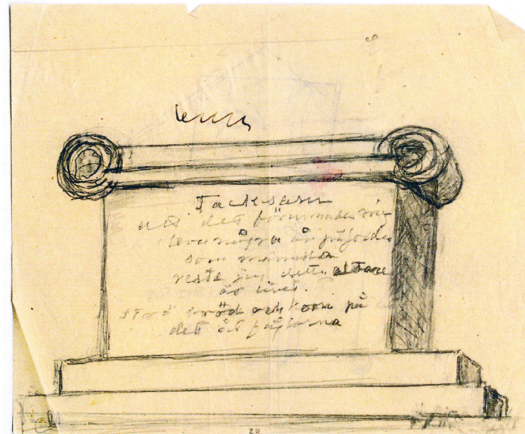 Tacksam
att det förunnades mig
leva några år på jorden
som människa
reste jag detta altare
åt livet.
Strö bröd och korn på
det åt fåglarna
20